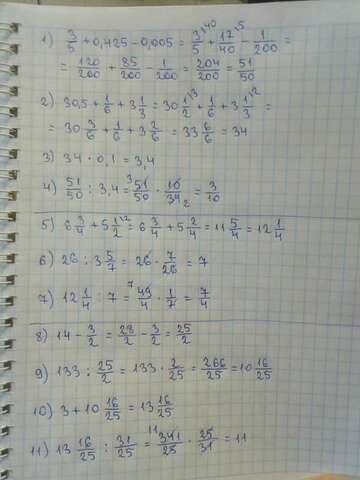 1) 3/5 + 0,425 - 0,005 = 3/5^40 + 17/40^5 - 1/200 =
= 120/200 + 85/200 - 1/200 = 204/200 = 51/50
2) 30,5 + 1/6 + 3 1/3 = 30 1/2^3 + 1/6 + 3 1/3^2 =
= 30 3/6 + 1/6 + 3 2/6 = 33 6/6 = 34
3) 34 · 0,1 = 3,4
4) 51/50 : 3,4 = ^3 51/50 · 10/34_2 = 3/10
5) 6 3/4 + 5 1/2^2 = 6 3/4 + 5 2/4 = 11 5/4 = 12 1/4
6) 26 : 3 5/7 = 26 · 7/26 = 7
7) 12 1/4 : 7 = ^7 49/4 · 1/7 = 7/4
8) 14 - 3/2 = 28/2 - 3/2 = 25/2
9) 133 : 25/2 = 133 · 2/25 = 266/25 = 10 16/25
10) 3 + 10 16/25 = 13 16/25
11) 13 16/25 : 31/25 = ^11 341/25 · 25/31 = 11